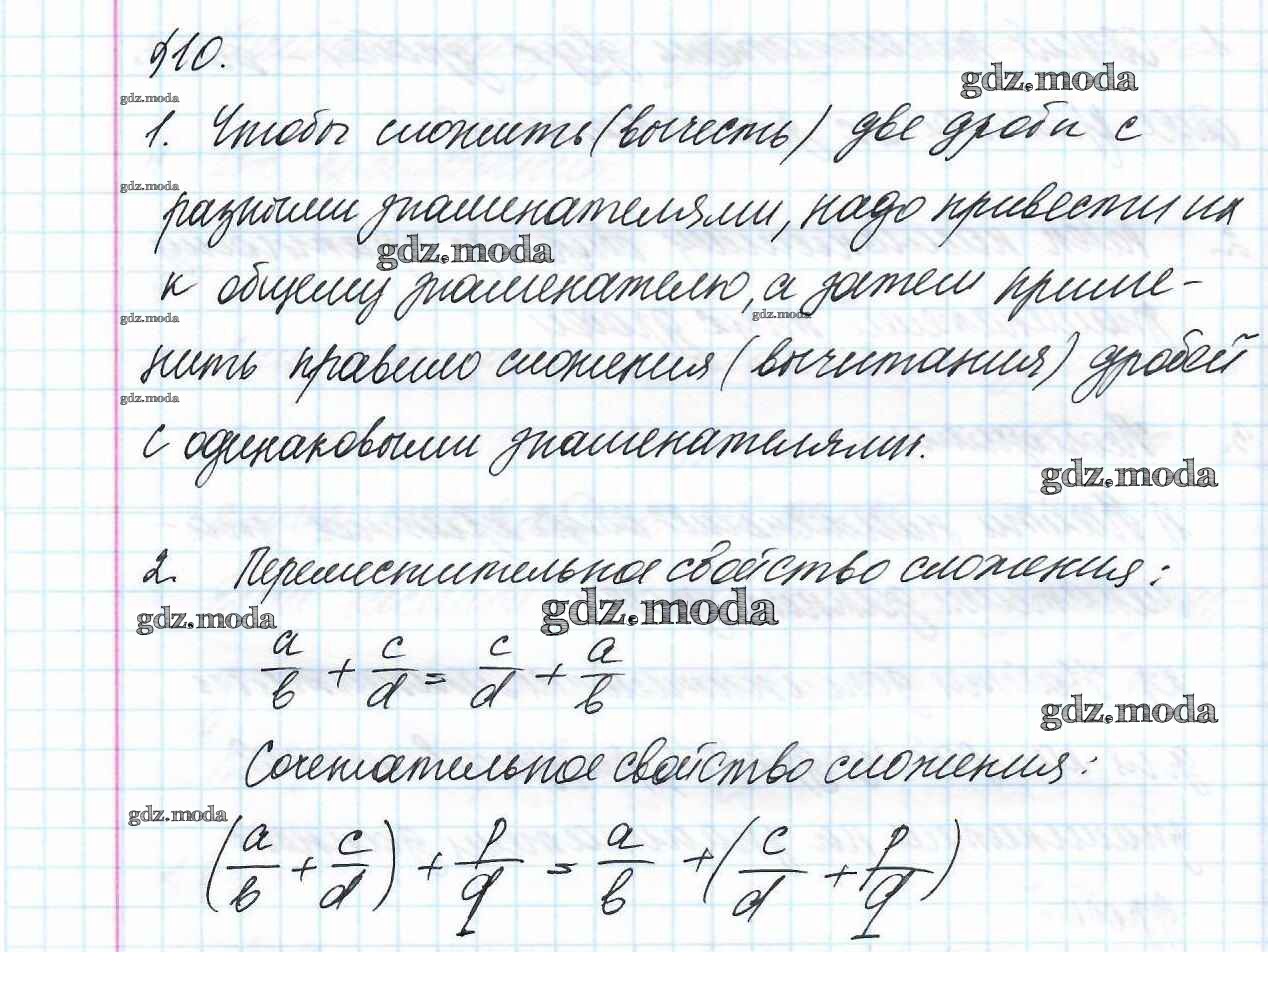 §10.
gdz.moda
gdz.moda
1. Чтобы сложить (вычесть) две дроби с
gdz.moda
разными знаменателями, надо привести их
gdz.moda
к общему знаменателю, а затем приме-
gdz.moda
gdz.moda
нить правило сложения (вычитания) дробей
gdz.moda
с одинаковыми знаменателями.
gdz.moda
2. Переместительное свойство сложения:
gdz.moda
gdz.moda
a/b + c/d = c/d + a/b
gdz.moda
Сочетательное свойство сложения:
gdz.moda
(a/b + c/d) + p/q = a/b + (c/d + p/q)